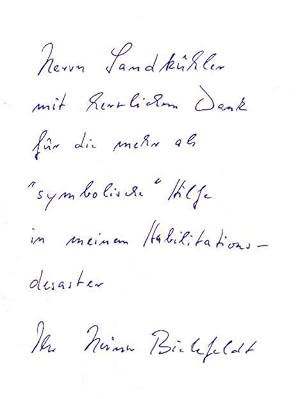 Herrn Sandkühler
mit herzlichem Dank
für die mehr als
"symbolische" Hilfe
in meinem Habilitations-
desaster
Ihr Heiner Bielefeldt